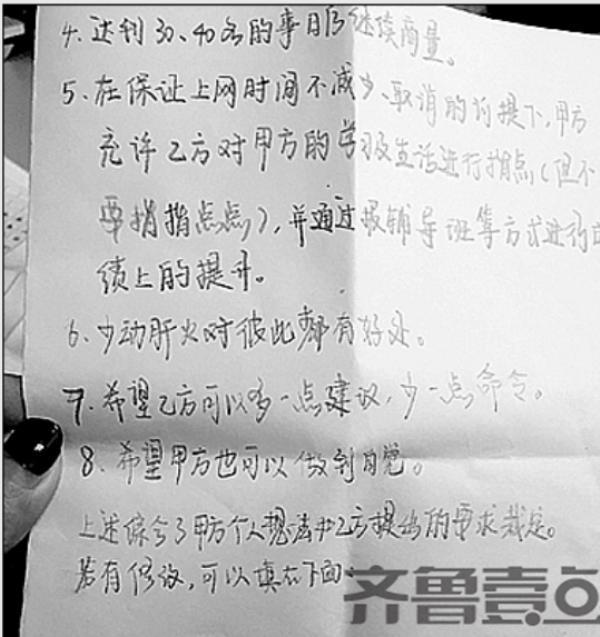 4.达到30、40名的事日后继续商量。
5、在保证上网时间不减少、取消的前提下,甲方
允许乙方对甲方的学习及生活进行指点(但不
要指指点点),并通过报辅导班等方式进行成
绩上的提升。
6、少动肝火对彼此都有好处。
7、希望乙方可以多一点建议,少一点命令。
8、希望甲方也可以做到自觉。
上述综合了甲方个人想法和乙方提出的要求裁定。
若有修改,可以填在下面。
齐鲁壹点